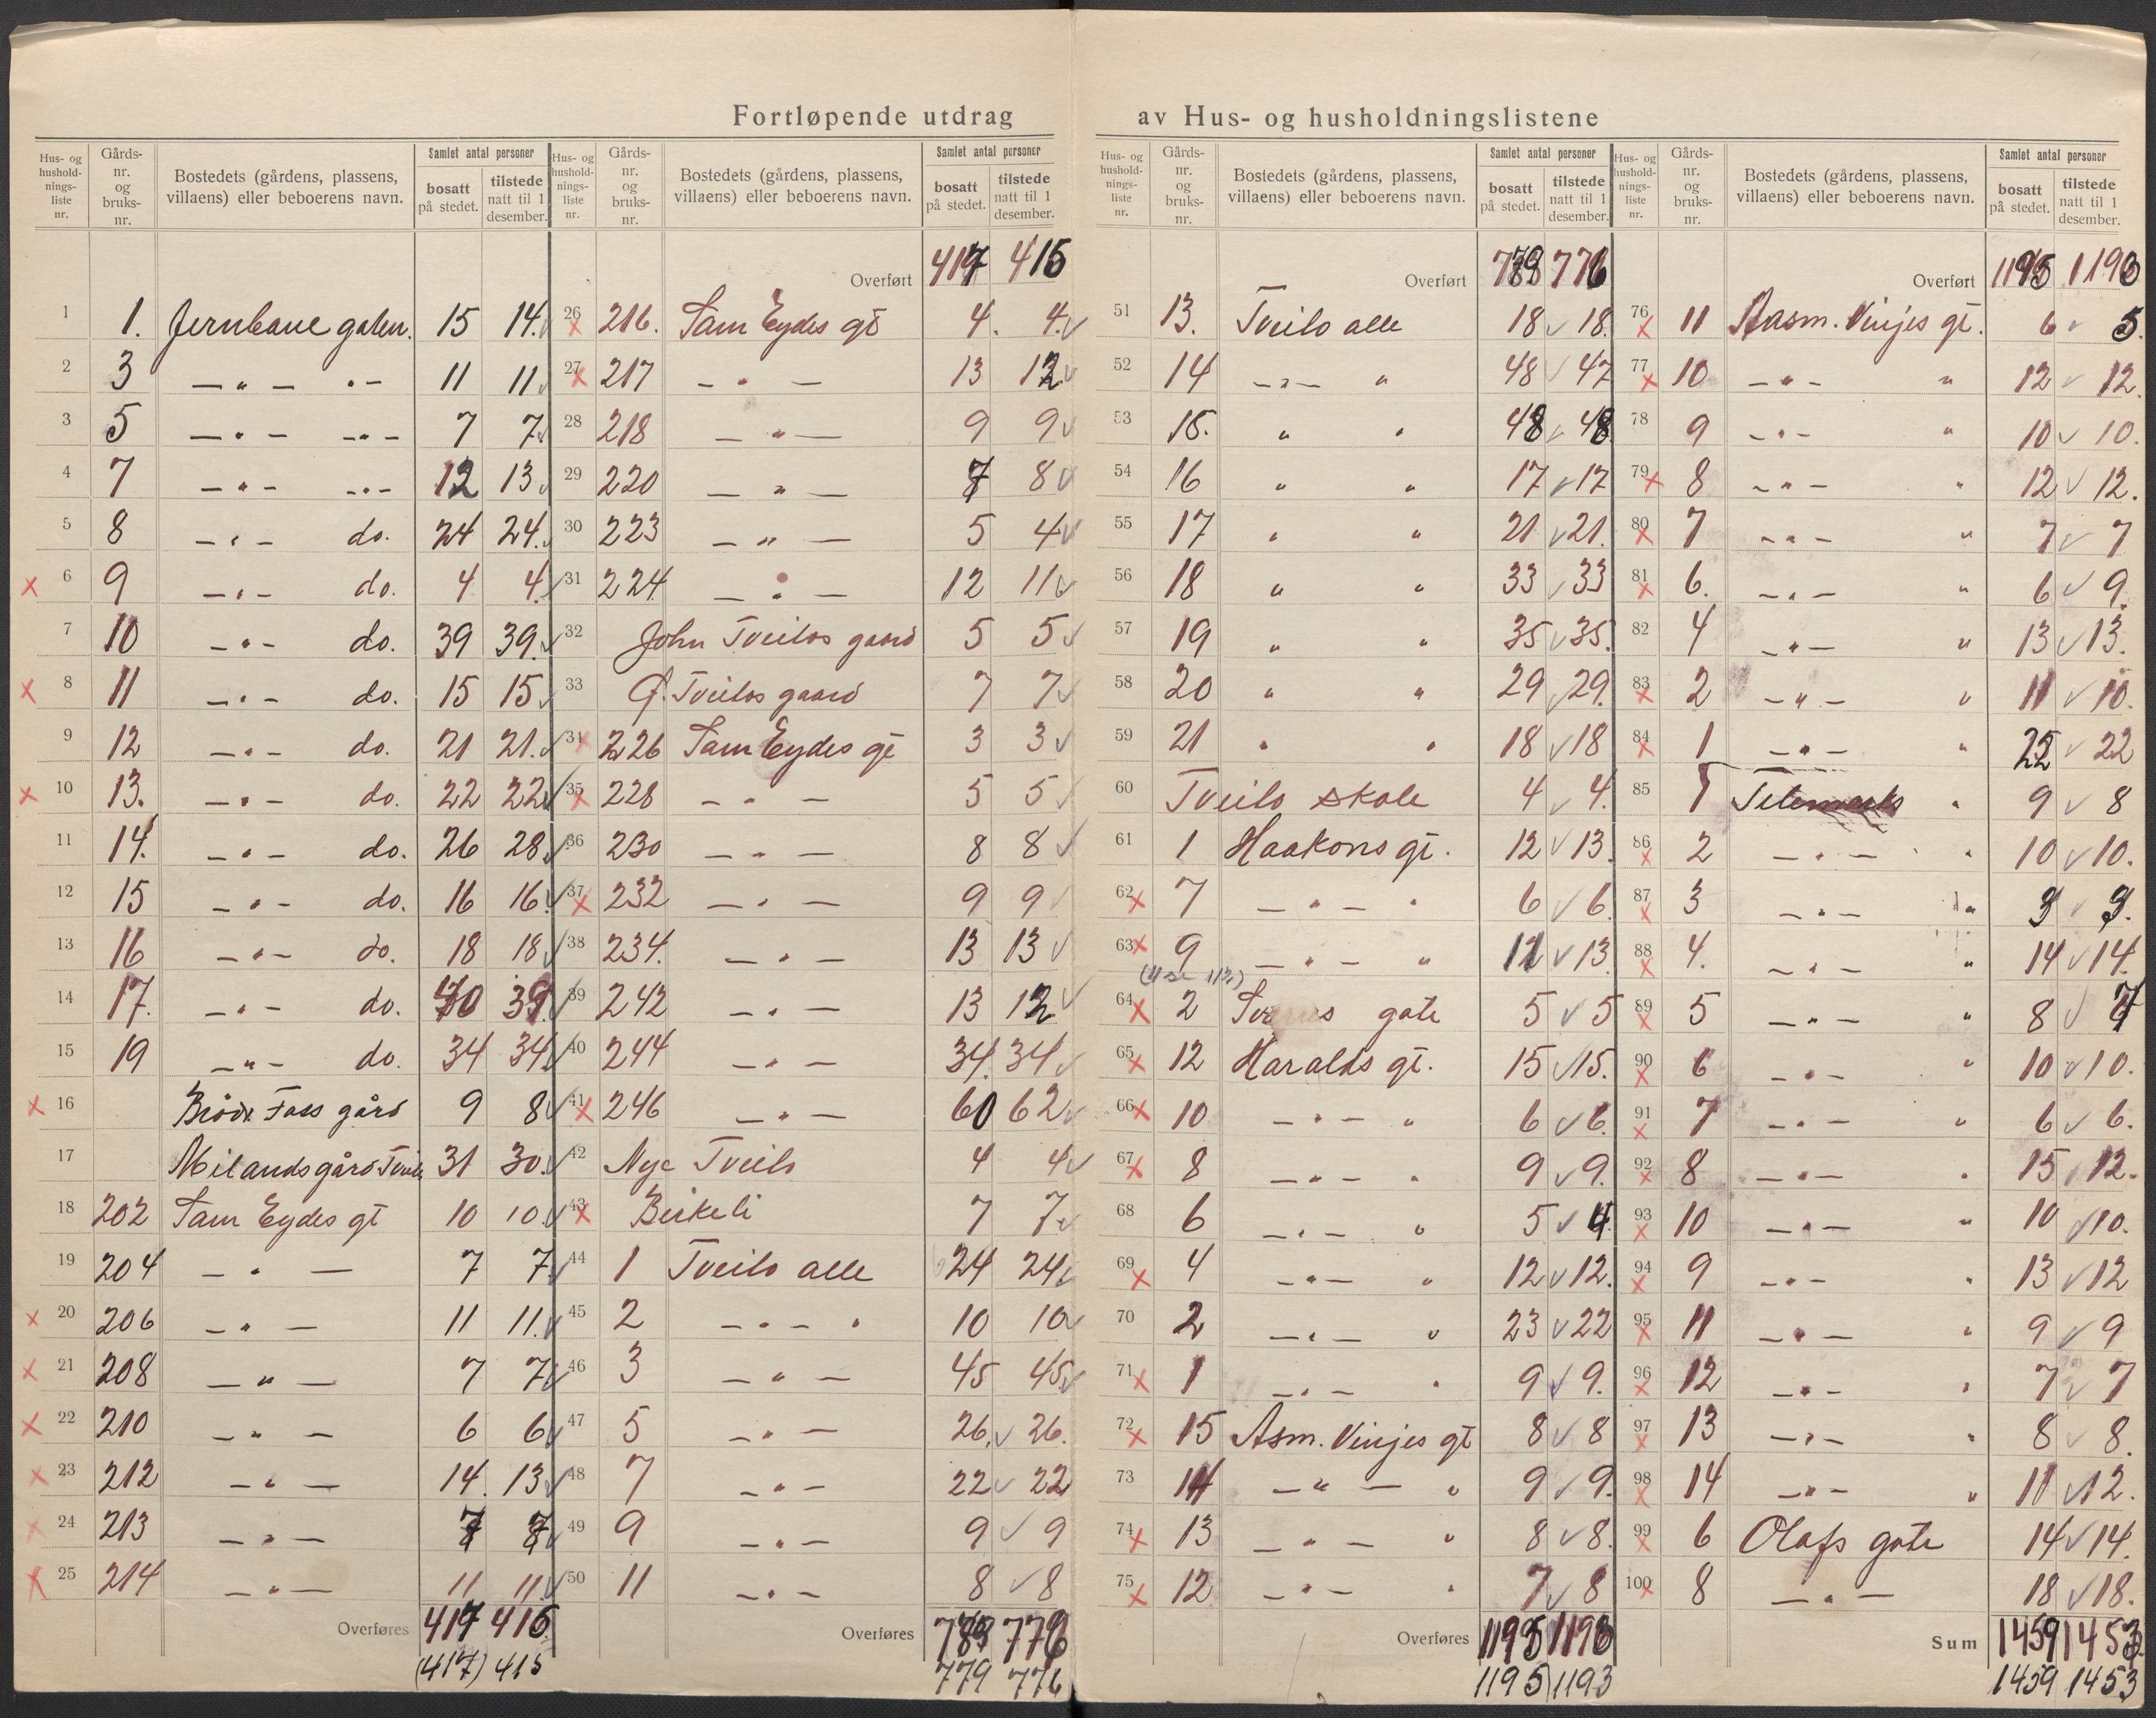 Fortløpende utdrag av Hus- og husholdningslistene
Hus- og husholdnings-liste nr. Gårds-nr. og bruks-nr. Bostedets (gårdens, plassens, villaens) eller beboerens navn. Samlet antal personer bosatt på stedet. tilstede natt til 1 desember.
1 1. Jernbane gaten. 15 14.
2 3 — „ — „ — 11 11
3 5 — „ — — „ — 7 7
4 7 — „ — — „ — 12 13
5 8 — „ — do. 24 24.
x 6 9 — „ — do. 4 4
7 10 — „ — do. 39 39.
x 8 11 — „ — do. 15 15
9 12 — „ — do. 21 21.
x 10 13. — „ — do. 22 22
11 14. — „ — do. 26 28
12 15 — „ — do. 16 16
13 16 — „ — do. 18 18
14 17. — „ — do. 40 39
15 19 — „ — do. 34 34
x 16 Brødr. Foss gård 9 8
17 Milands gård 31 30.
18 202 Sam Eydes gt 10 10.
19 204 — „ — 7 7
x 20 206 — „ — 11 11.
x 21 208 — „ — 7 7
x 22 210 — „ — 6 6
x 23 212 — „ — 14. 13
x 24 213 — „ — 7 7
x 25 214 — „ — 11 11
Overføres 417 415
(417) 415
Hus- og husholdnings-liste nr. Gårds-nr. og bruks-nr. Bostedets (gårdens, plassens, villaens) eller beboerens navn. Samlet antal personer bosatt på stedet. tilstede natt til 1 desember.
Overført 417 415
26 x 216. Sam Eydes gt 4. 4.
27 x 217 — „ — 13 12
28 218 — „ — 9 9
29 220 — „ — 7 8
30 223 — „ — 5 4
31 224 — „ — 12 11
32 John Tveitos gaard 5 5
33 Tveitos gaard 7 7
34 x 226 Sam Eydes gt 3 3
35 x 228 — „ — 5 5
36 230 — „ — 8 8
37 x 232 — „ — 9 9
38 234. — „ — 13 13
39 242 — „ — 13 12
40 244 — „ — 34. 34
41 x 246 — „ — 60 62
42 Nye Tveito 4 4
43 x Birkeli 7 7
44 1 Tveito alle 24 24
45 2 — „ — „ 10 10
46 3 — „ — 45 45
47 5 — „ — 26. 26.
48 7 — „ — 22 22
49 9 — „ — 9 9
50 11 — „ — 8 8
Overføres 779 776
779 776
Hus- og husholdnings-liste nr. Gårds-nr. og bruks-nr. Bostedets (gårdens, plassens, villaens) eller beboerens navn. Samlet antal personer bosatt på stedet. tilstede natt til 1 desember.
Overført 779 776
51 13. Tveito alle 18 18.
52 14 — „ — „ 48 47
53 15. „ „ 48 48
54 16 „ „ 17 17
55 17 „ „ 21 21.
56 18 „ „ 33 33
57 19 „ „ 35 35.
58 20 „ „ 29 29.
59 21 „ „ 18 18
60 Tveito skole 4 4.
61 1 Haakons gt. 12 13.
62 x 7 — „ — „ 6 6.
63 x 9 — „ — „ 12 13
64 x 2 gate 5 5
65 x 12 Haralds gt. 15 15.
66 x 10 — „ — „ 6 6.
67 x 8 — „ — „ 9 9.
68 6 — „ — „ 5 4
69 x 4 — „ — „ 12 12.
70 2 — „ — „ 23 22
71 x 1 — „ — „ 9 9.
72 x 15 Asm. Vinjes gt 8 8
73 14 — „ — „ 9 9.
74 x 13 — „ — „ 8 8.
75 x 12 — „ — „ 7 8
Overføres 1195 1193
1195 1193
Hus- og husholdnings-liste nr. Gårds-nr. og bruks-nr. Bostedets (gårdens, plassens, villaens) eller beboerens navn. Samlet antal personer bosatt på stedet. tilstede natt til 1 desember.
Overført 1195 1193
76 x 11 Aasm. Vinjes gt. 6 5.
77 x 10 — „ — „ 12 12.
78 9 — „ — „ 10 10.
79 x 8 — „ — „ 12 12.
80 x 7 — „ — „ 7 7
81 x 6. — „ — „ 6 9.
82 4 — „ — „ 13 13.
83 x 2 — „ — „ 11 10.
84 x 1 — „ — „ 22 22
85 1 Telemarks „ 9 8
86 x 2 — „ — „ 10 10.
87 x 3 — „ — „ 9 9.
88 x 4. — „ — „ 14 14.
89 x 5 — „ — „ 8 7
90 x 6 — „ — „ 10 10.
91 x 7 — „ — „ 6 6.
92 x 8 — „ — „ 15 12.
93 x 10 — „ — „ 10 10.
94 x 9 — „ — „ 13 12
95 x 11 — „ — „ 9 9
96 x 12 — „ — „ 7 7
97 x 13 — „ — „ 8 8.
98 x 14 — „ — „ 11 12.
99 x 6 Olafs gate 14 14.
100 x 8 — „ — 18 18.
Sum 1459 1453
1459 1453